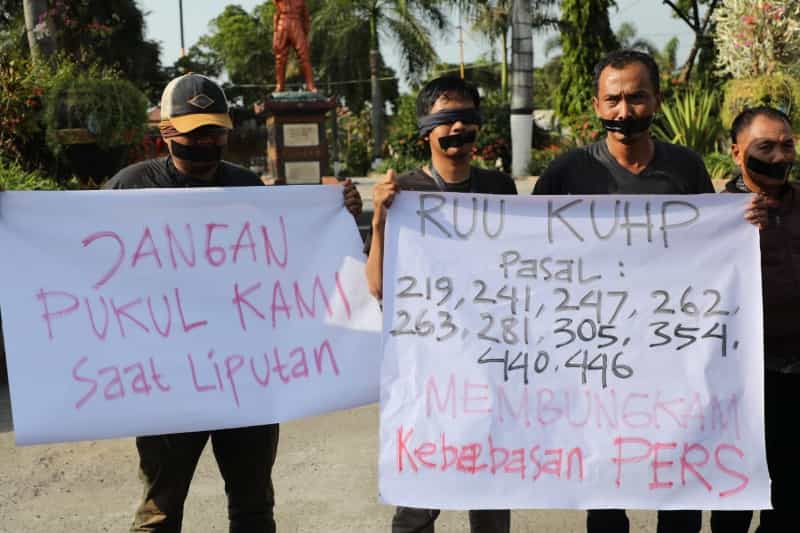 JANGAN
PUKUL KAMI
Saat Liputan
RUU KUHP
Pasal :
219, 241, 247, 262,
263, 281, 305, 354,
440.446
MEMBUNGKAM
Kebebasan PERS